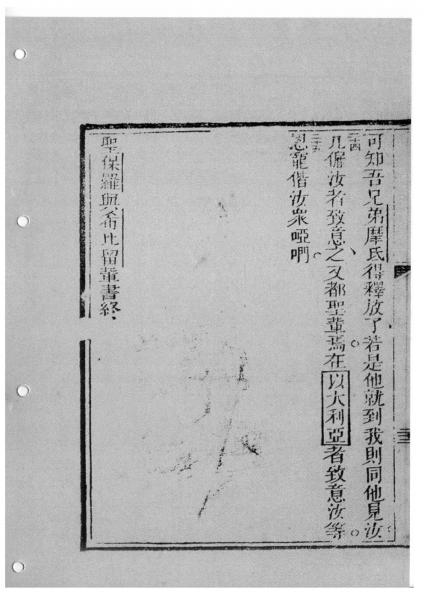 可知吾兄弟摩氏得釋放了若是他就到我則同他見汝。
二十四
凡汝者致意之、又都聖輩焉。在以大利亞者致意汝等。
二十五
恩寵偕汝眾啞們。
聖保羅與希比留輩書終、